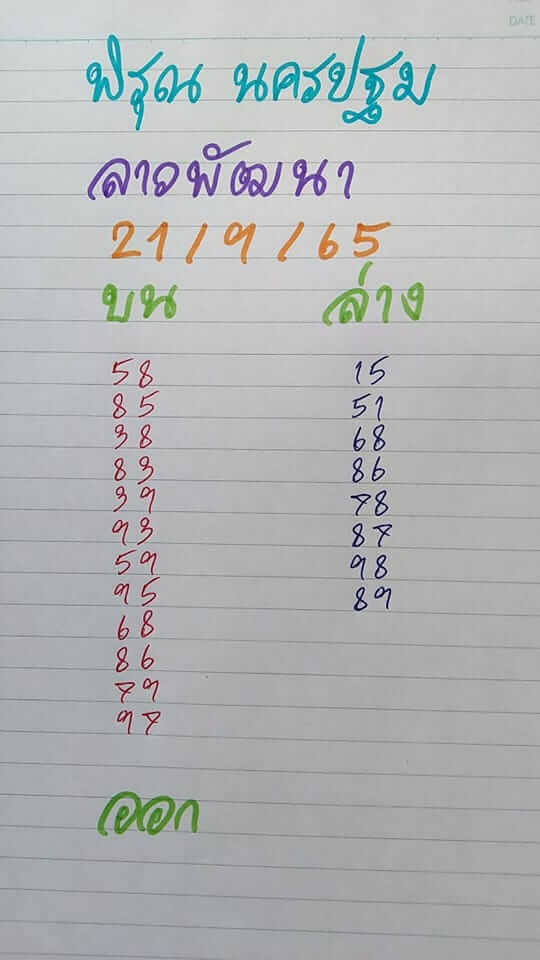 DATE
พิรุณ นครปฐม
ลาวพัฒนา
21/9/65
บน ล่าง
58 15
85 51
38 68
83 86
39 78
93 87
59 98
95 89
68
86
79
97
ออก